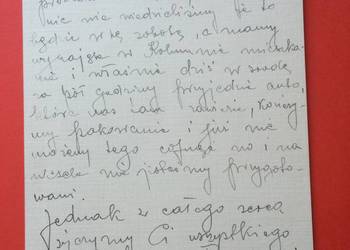 nic nie wiedzieliśmy że to
będzie w tę sobotę, a mamy
wynajęte w Kolumnie mieszka-
nie i właśnie dziś w środę
za pół godziny przyjedzie auto,
które nas tam zawiezie, kończy-
my pakowanie i już nie
możemy tego cofnąć no i na
wesele nie jesteśmy przygoto-
wani.
Jednak z całego serca
życzymy Ci wszystkiego